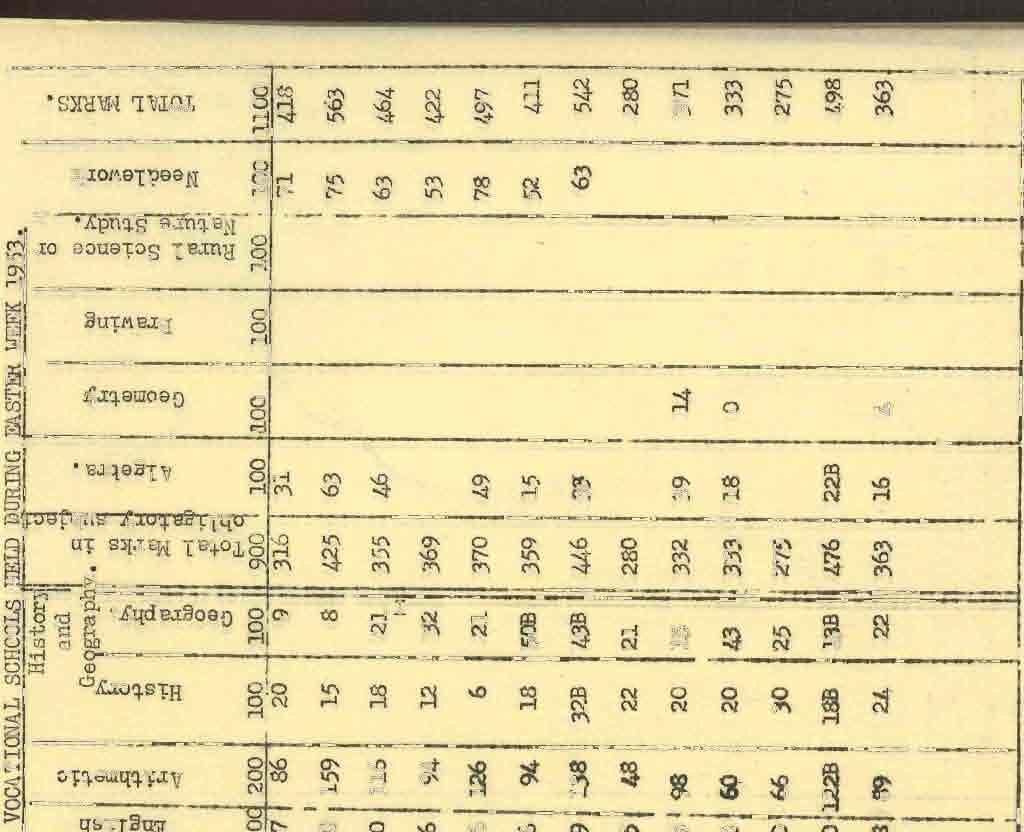 VOCATIONAL SCHOOLS HELD DURING EASTER WEEK 1953.
History
and
Geography.
English
Arithmetic
History
Geography
Total Marks in
obligatory subject
Algebra.
Geometry
Drawing
Rural Science or
Nature Study.
Needlewor
TOTAL MARKS.
00 200 100 100 900 100 100 100 100 100 1100
7 86 20 9 316 31 71 418
159 15 8 425 63 75 563
0 18 21 355 46 63 464
6 94 12 32 369 53 422
126 6 21 370 49 78 497
94 18 50B 359 15 52 411
9 138 32B 43B 446 33 63 542
48 22 21 280 280
98 20 332 39 14 371
60 20 43 333 18 0 333
66 30 25 275 275
122B 18B 13B 476 22B 498
89 24 22 363 16 363